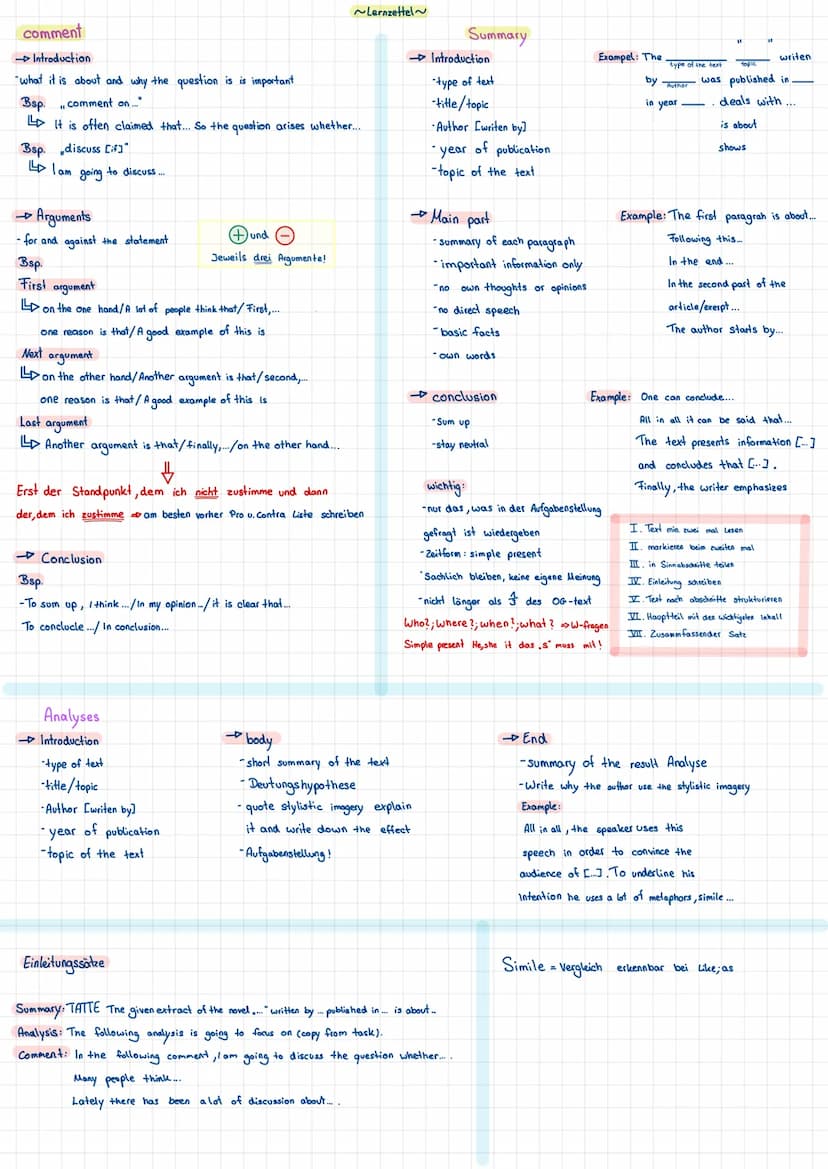 ~Lernzettel~
comment
→ Introduction
-what it is about and why the question is is important
Bsp. „comment on..."
↳ It is often claimed that... So the question arises whether...
Bsp. „discuss [if]"
↳ I am going to discuss...
→ Arguments
- for and against the statement
+ und -
Jeweils drei Argumente!
Bsp.
First argument
↳ on the one hand/A lot of people think that/First,...
one reason is that/A good example of this is
Next argument
↳ on the other hand/Another argument is that/second,...
one reason is that/A good example of this is
Last argument
↳ Another argument is that/finally,.../on the other hand...
⇓
Erst der Standpunkt, dem ich nicht zustimme und dann
der, dem ich zustimme ⇒ am besten vorher Pro u. Contra Liste schreiben
→ Conclusion
Bsp.
-To sum up, I think.../In my opinion.../it is clear that...
To conclucle.../In conclusion...
Summary
→ Introduction
-type of text
-title/topic
-Author [writen by]
-year of publication
-topic of the text
Exampel: The ____ "____" writen
type of the text topic
by ____ was published in ____
Author
in year ____. deals with...
is about
shows
→ Main part
-summary of each paragraph
-important information only
-no own thoughts or opinions
-no direct speech
-basic facts
-own words
Example: The first paragrah is about...
Following this...
In the end...
In the second part of the
article/exerpt...
The author starts by...
→ conclusion
-Sum up
-stay neutral
Example: One can conclude...
All in all it can be said that...
The text presents information [...]
and concludes that [...].
Finally, the writer emphasizes
wichtig:
-nur das, was in der Aufgabenstellung
gefragt ist wiedergeben
-Zeitform: simple present
-Sachlich bleiben, keine eigene Meinung
-nicht länger als des OG-text
Who?; Where?; when?; what? ⇒ W-fragen
Simple present He, she it das „s" muss mit!
I. Text min. zwei mal lesen
II. markieren beim zweiten mal
III. in Sinnabschnitte teilen
IV. Einleitung schreiben
V. Text nach abschnitte strukturieren
VI. Hauptteil mit des wichtigsten Inhalt
VII. Zusammfassender Satz
Analyses
→ Introduction
-type of text
-title/topic
-Author [writen by]
-year of publication
-topic of the text
→ body
-short summary of the text
-Deutungshypothese
-quote stylistic imagery explain
it and write down the effect
-Aufgabenstellung!
→ End
-summary of the result Analyse
-Write why the author use the stylistic imagery
Example:
All in all, the speaker uses this
speech in order to convince the
audience of [...]. To underline his
intention he uses a lot of metaphors, simile...
Einleitungssätze
Summary: TATTE The given extract of the novel „..." written by ... published in ... is about..
Analysis: The following analysis is going to focus on (copy from task).
Comment: In the following comment, I am going to discuss the question whether....
Many people think...
Lately there has been a lot of discussion about....
Simile = Vergleich erkennbar bei like; as